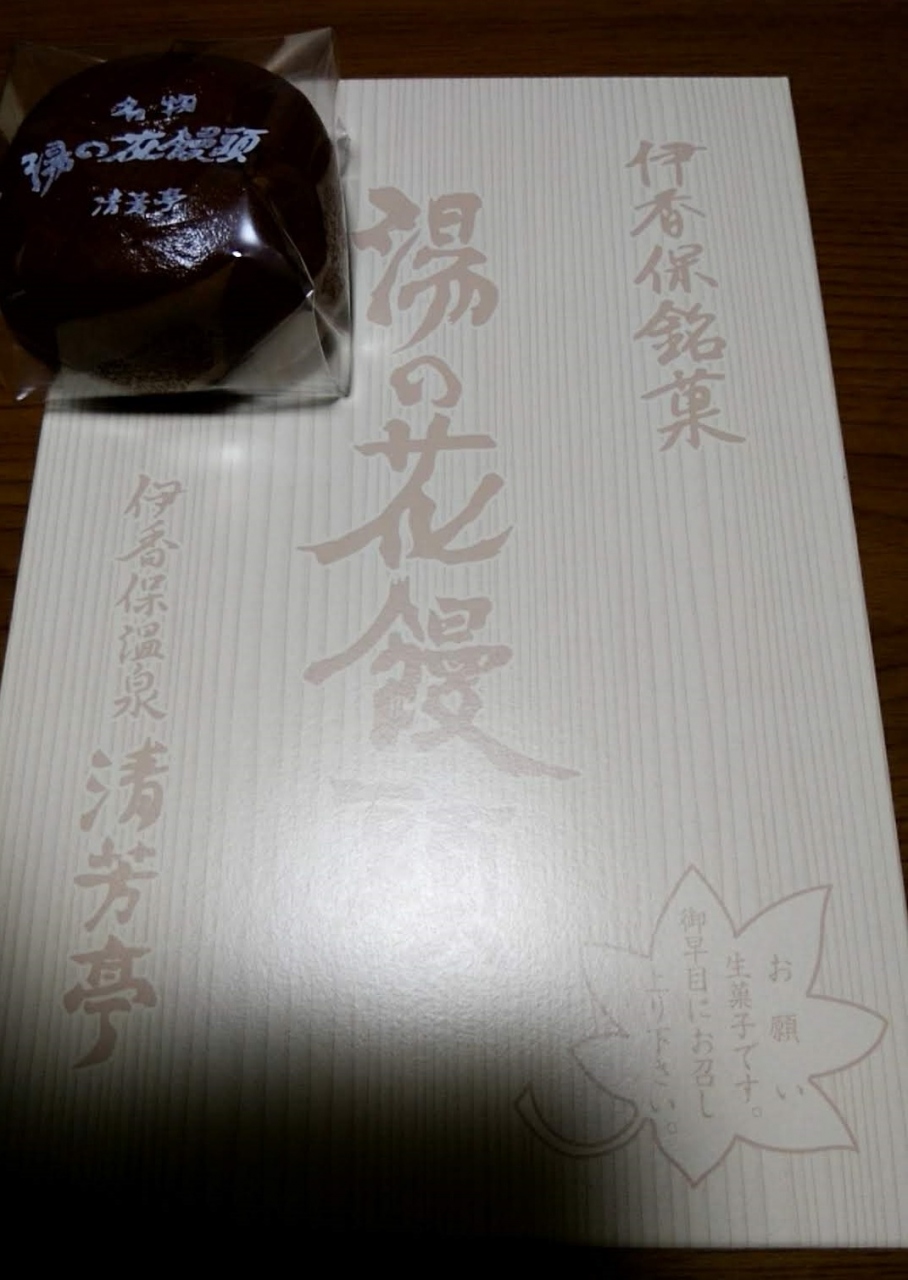 名物
湯の花饅頭
清芳亭
伊香保銘菓
湯の花饅
伊香保温泉
清芳亭
お願い
生菓子です。
御早目にお召し
上り下さい。